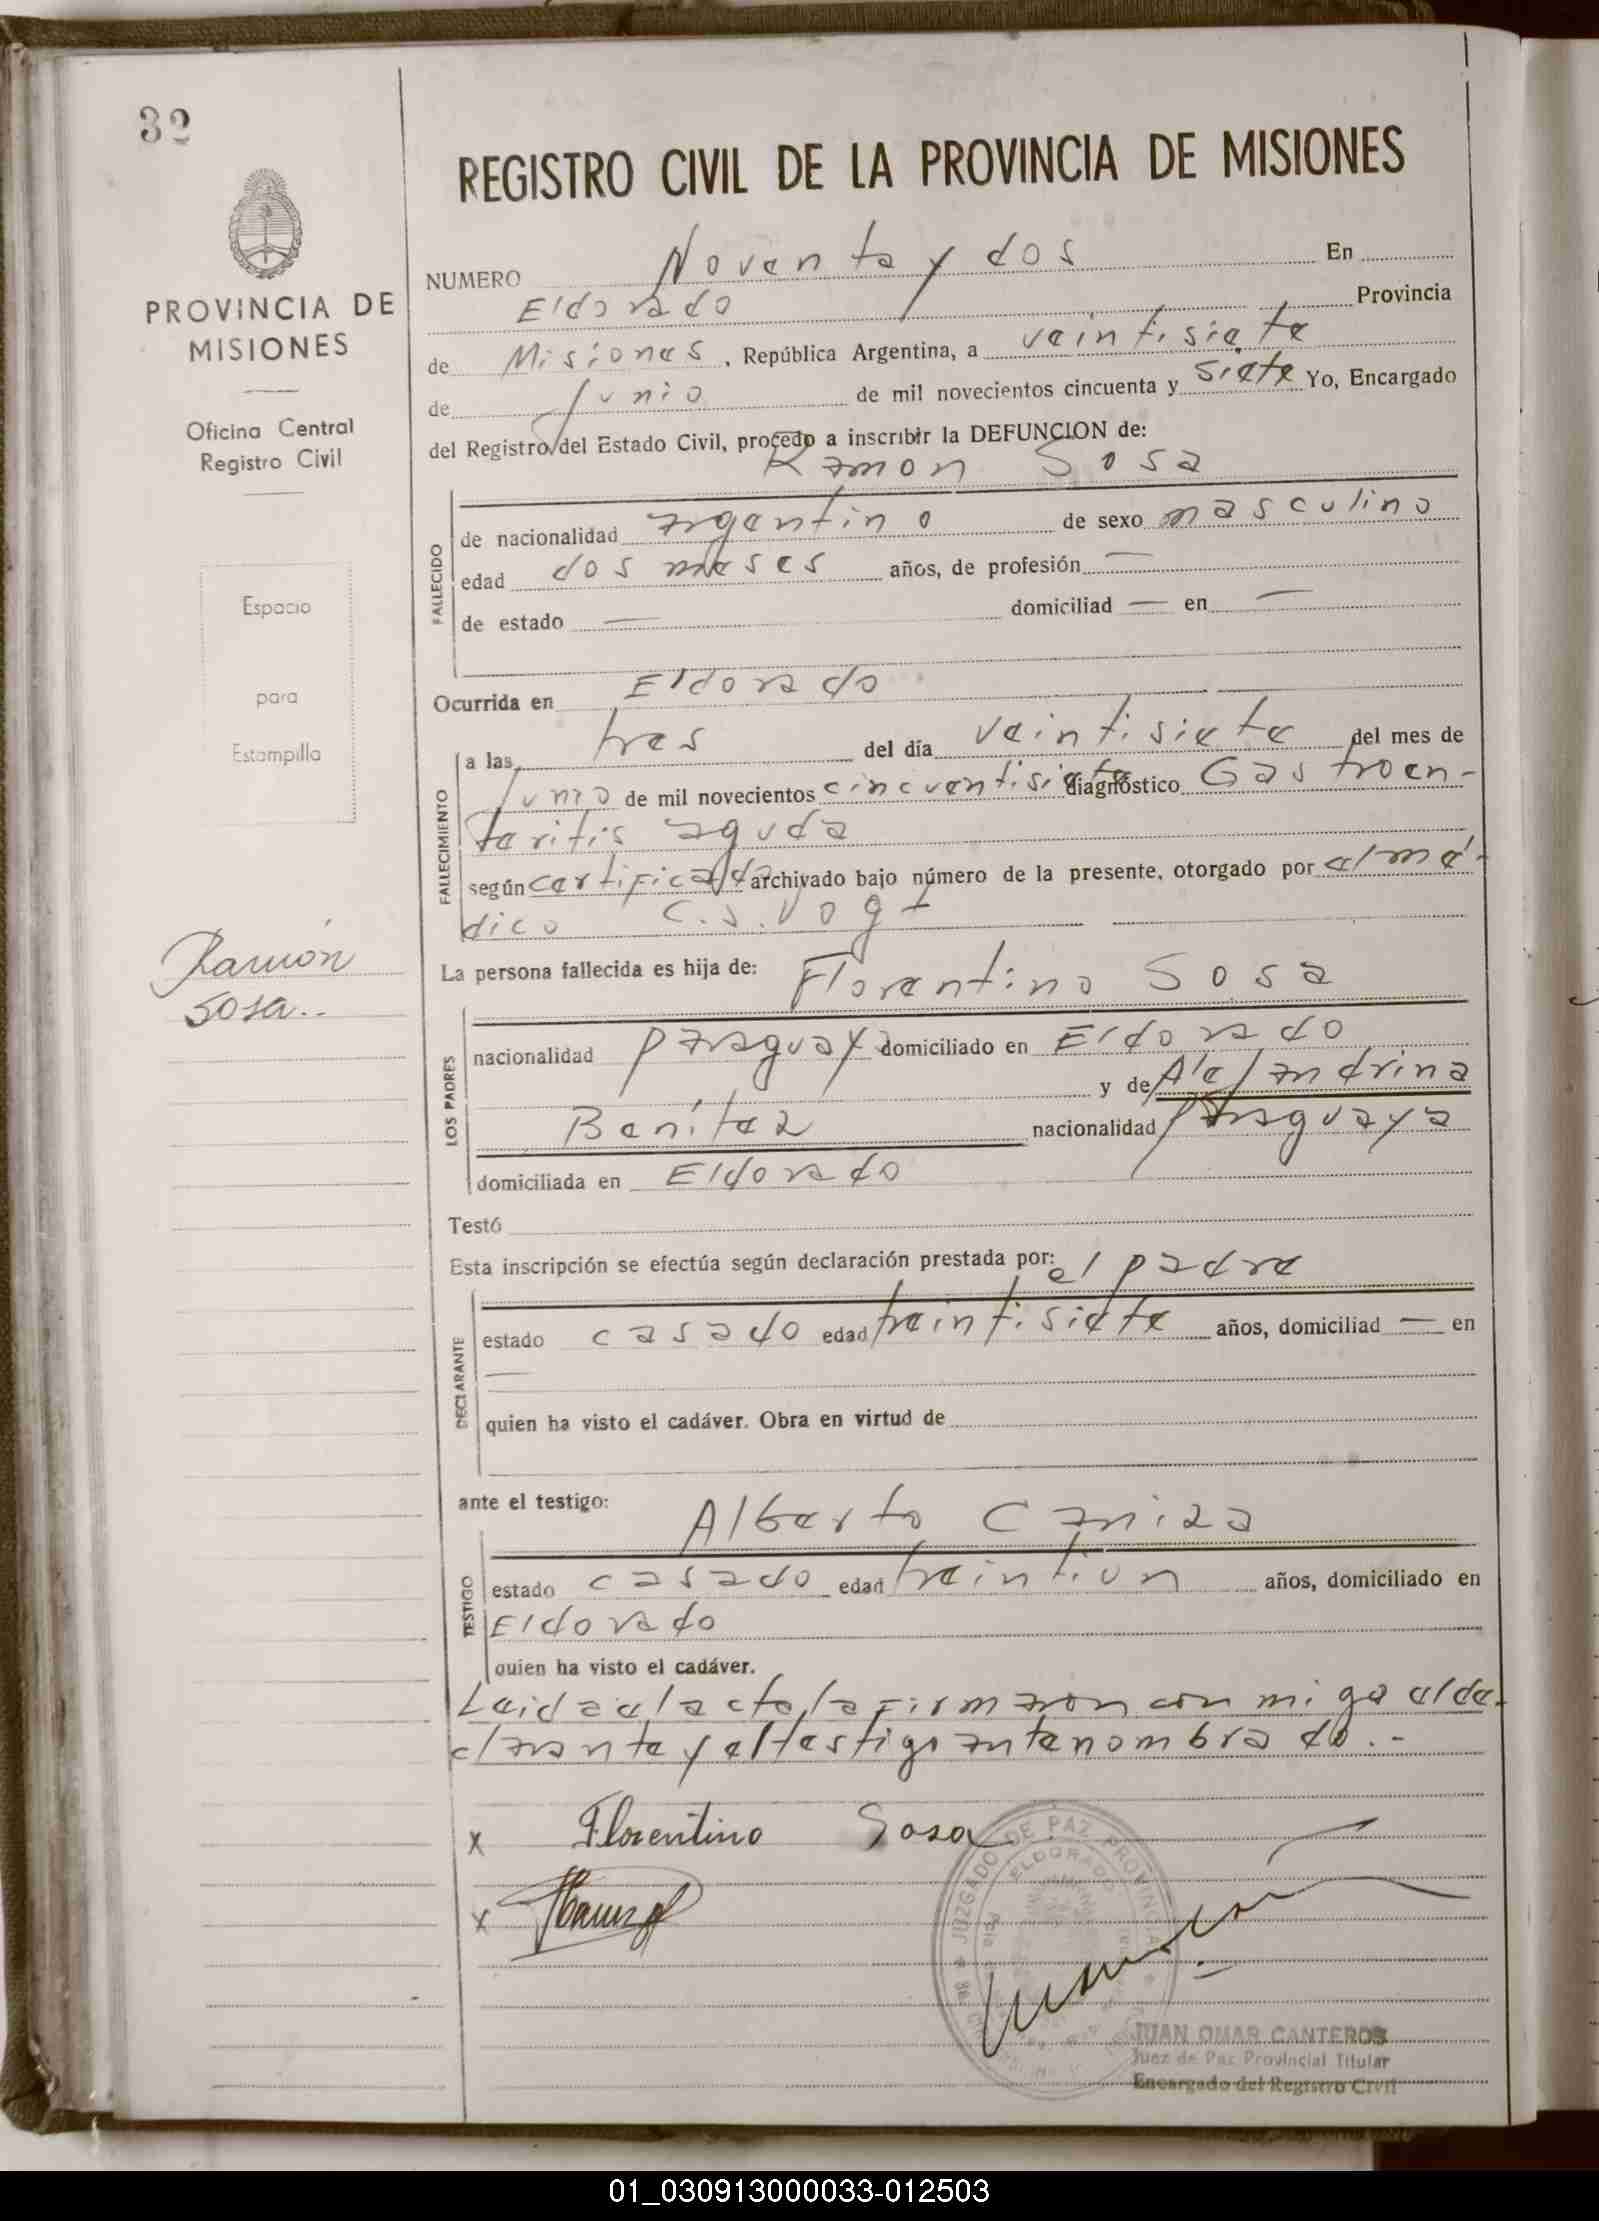 32
REGISTRO CIVIL DE LA PROVINCIA DE MISIONES
PROVINCIA DE
MISIONES
Oficina Central
Registro Civil
Espacio
para
Estampilla
Ramón
Sosa..
NUMERO Noventa y dos En
Eldorado Provincia
de Misiones, República Argentina, a veintisiete
de Junio de mil novecientos cincuenta y siete Yo, Encargado
del Registro del Estado Civil, procedo a inscribir la DEFUNCION de:
Ramon Sosa
FALLECIDO
de nacionalidad argentino de sexo masculino
edad dos meses años, de profesión —
de estado — domiciliad — en —
Ocurrida en Eldorado
FALLECIMIENTO
a las tres del día veintisiete del mes de
Junio de mil novecientos cincuentisiete diagnóstico Gastroen-
teritis aguda
según certificado archivado bajo número de la presente, otorgado por el mé-
dico C.S. Vogt
La persona fallecida es hija de: Florentino Sosa
LOS PADRES
nacionalidad paraguay domiciliado en Eldorado
y de Alejandrina
Benítez nacionalidad paraguaya
domiciliada en Eldorado
Testó
Esta inscripción se efectúa según declaración prestada por: el padre
DECLARANTE
estado casado edad treintisiete años, domiciliad — en
—
quien ha visto el cadáver. Obra en virtud de
ante el testigo:
Alberto Caniza
TESTIGO
estado casado edad treintiun años, domiciliado en
Eldorado
quien ha visto el cadáver.
Leida el acta la firmaron con migo el de-
clarante y el testigo antenombrado.-
x Florentino Sosa
x
JUZGADO DE PAZ PROVINCIAL
ELDORADO
JUAN OMAR CANTEROS
Juez de Paz Provincial Titular
Encargado del Registro Civil
01_030913000033-012503